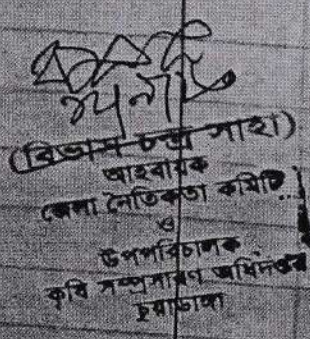 (বিভাস চন্দ্র সাহা)
আহবায়ক
জেলা নৈতিকতা কমিটি
ও
উপপরিচালক
কৃষি সম্প্রসারণ অধিদপ্তর
চুয়াডাঙ্গা